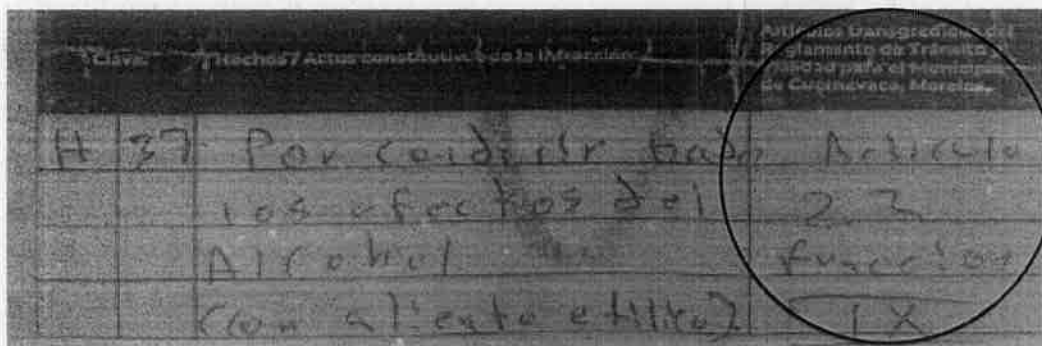 Clave.
Hechos / Actos constitutivos de la infracción
Artículos transgredidos del
Reglamento de Tránsito
Vialidad para el Municipio
de Cuernavaca, Morelos.
H 37 Por conducir bajo Articulo
los efectos del 23
Alcohol fraccion
(con aliento etilico) IX